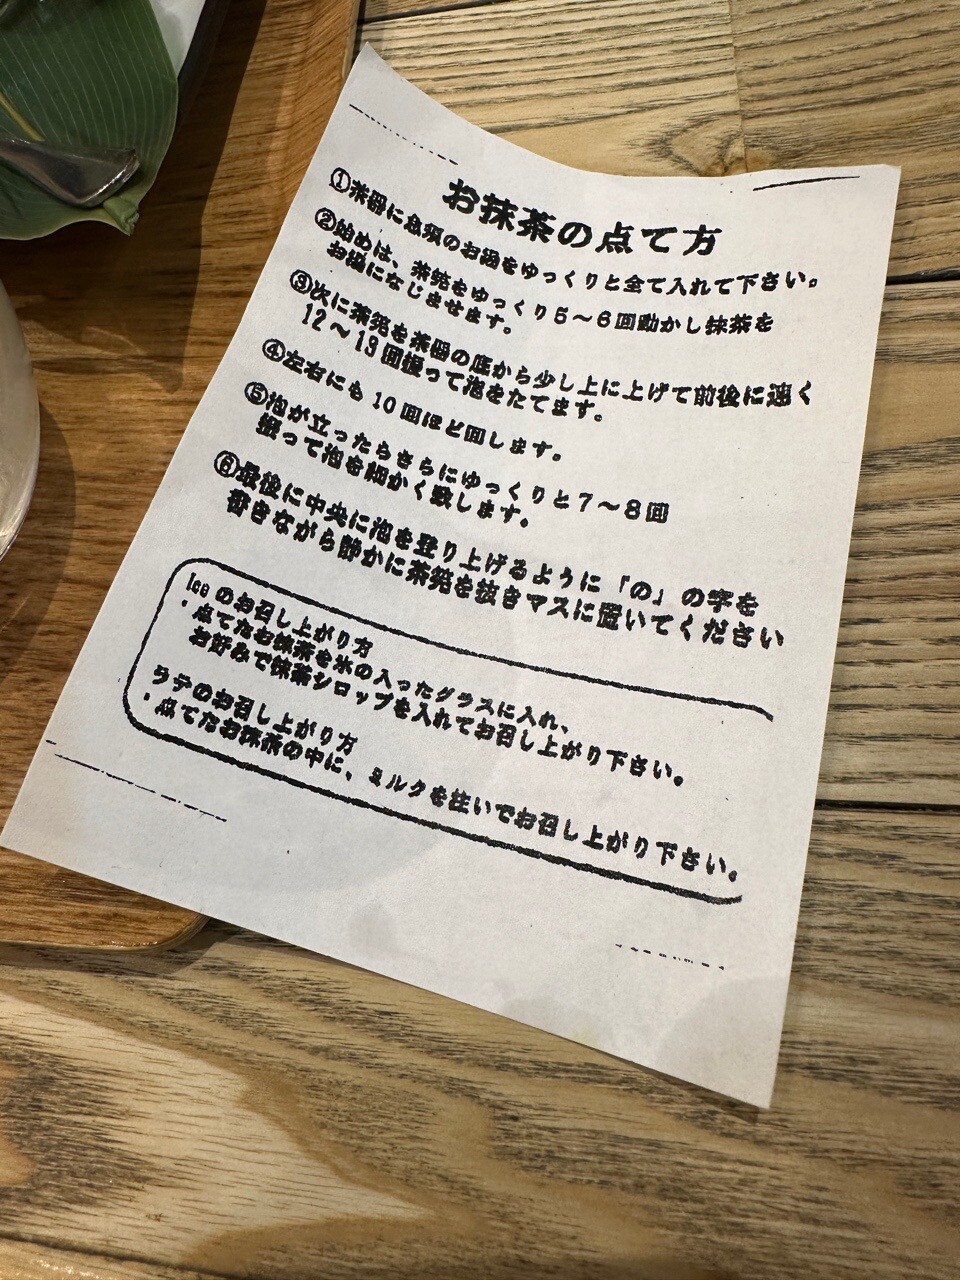 お抹茶の点て方
①茶器に急須のお湯をゆっくりと全て入れて下さい。
②始めは、茶筅をゆっくり5～6回動かし抹茶を
お湯になじませます。
③次に茶筅を茶器の底から少し上に上げて前後に速く
12～13回振って泡をたてます。
④左右にも10回ほど回します。
⑤泡が立ったらさらにゆっくりと7～8回
振って泡を細かく致します。
⑥最後に中央に泡を登り上げるように「の」の字を
書きながら静かに茶筅を抜きマスに置いてください
Iceのお召し上がり方
・点てたお抹茶を氷の入ったグラスに入れ、
お好みで抹茶シロップを入れてお召し上がり下さい。
ラテのお召し上がり方
・点てたお抹茶の中に、ミルクを注いでお召し上がり下さい。